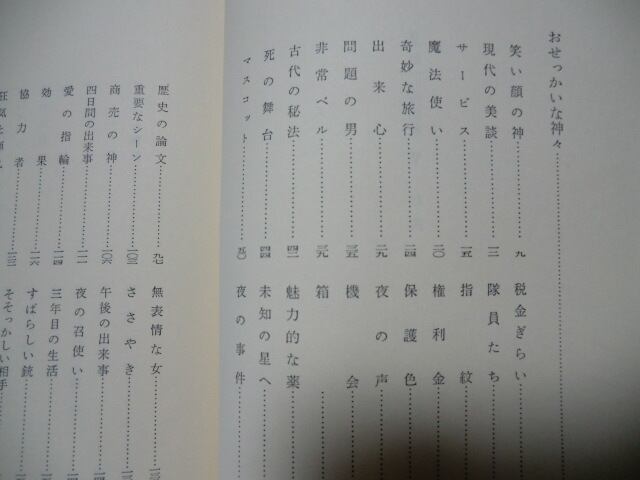 おせっかいな神々
笑い顔の神……九
現代の美談……一二
サービス……一五
魔法使い……二〇
奇妙な旅行……二四
出来心……二九
問題の男……三五
非常ベル……三九
古代の秘法……四二
死の舞台……四四
マスコット……五〇
税金ぎらい……
隊員たち……
指紋……
権利金……
保護色……
夜の声……
機会……
箱……
魅力的な薬……
未知の星へ……
夜の事件……
歴史の論文……九七
重要なシーン……一〇三
商売の神……一〇六
四日間の出来事……一一一
愛の指輪……一一四
効果……一一六
協力者……一二二
無表情な女……
ささやき……
午後の出来事……
夜の召使い……
三年目の生活……
すばらしい銃……
そそっかしい相手